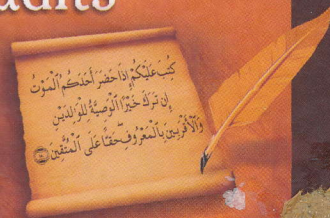 كُتِبَ عَلَيْكُمْ إِذَا حَضَرَ أَحَدَكُمُ الْمَوْتُ
إِن تَرَكَ خَيْرًا الْوَصِيَّةُ لِلْوَالِدَيْنِ
وَالْأَقْرَبِينَ بِالْمَعْرُوفِ حَقًّا عَلَى الْمُتَّقِينَ